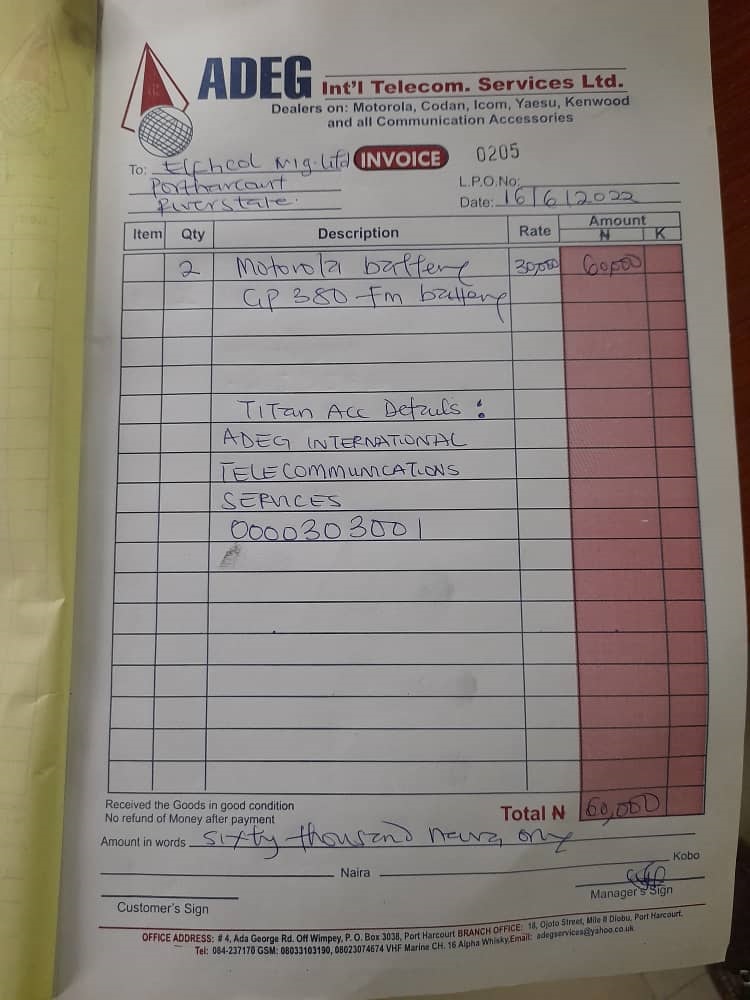 ADEG Int'l Telecom. Services Ltd.
Dealers on: Motorola, Codan, Icom, Yaesu, Kenwood
and all Communication Accessories
To: Nig. Ltd INVOICE 0205
Portharcourt L.P.O.No:
Riverstate. Date: 16/6/2022
Item Qty Description Rate Amount
N K
2 Motorola battery 30,000 60,000
GP 380 Fm battery
TITan Acc Details :
ADEG INTERNATIONAL
TELECOMMUNICATIONS
SERVICES
0000303001
Received the Goods in good condition
No refund of Money after payment
Total N 60,000
Amount in words Sixty thousand naira only
Naira Kobo
Customer's Sign Manager's Sign
OFFICE ADDRESS: # 4, Ada George Rd. Off Wimpey, P. O. Box 3038, Port Harcourt BRANCH OFFICE: 18, Ojoto Street, Mile II Diobu, Port Harcourt.
Tel: 084-237170 GSM: 08033103190, 08023074674 VHF Marine CH. 16 Alpha Whisky,Email: adegservices@yahoo.co.uk